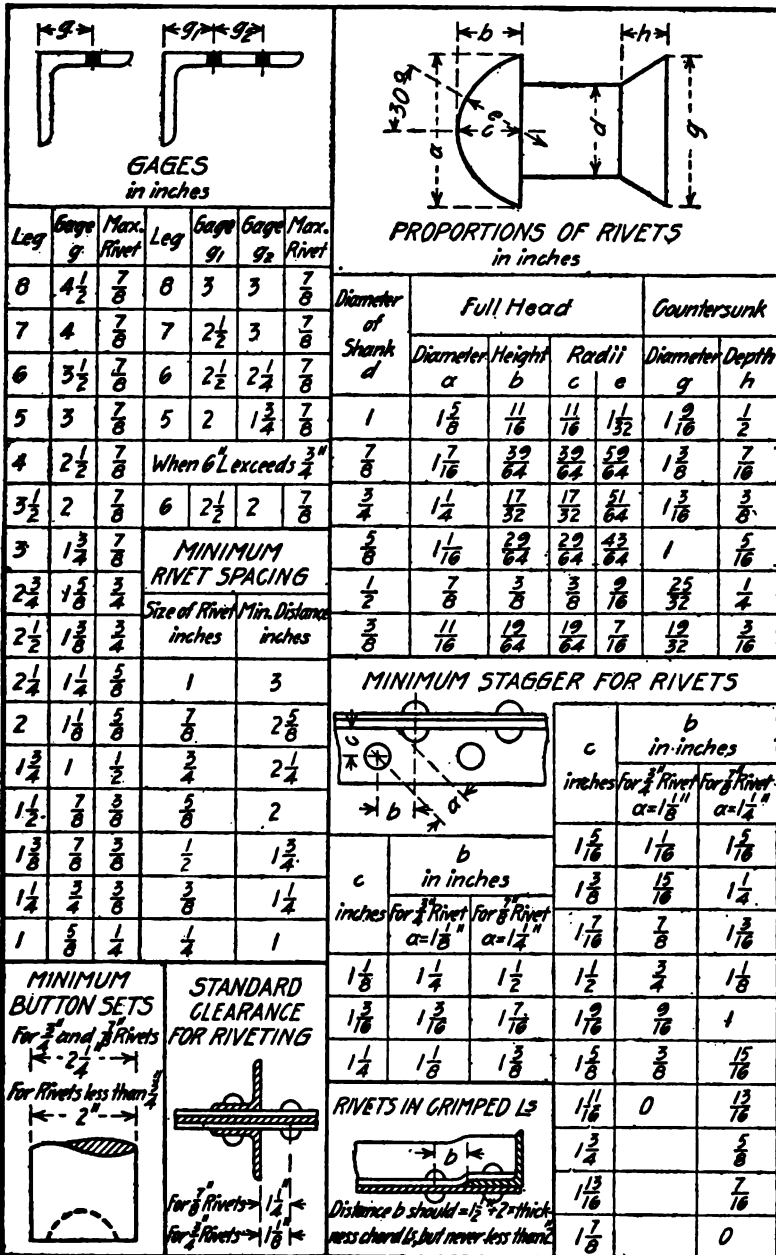 g g₁ g₂
GAGES
in inches
Leg Gage g Max. Rivet Leg Gage g₁ Gage g₂ Max. Rivet
8 4 1/2 7/8 8 3 3 7/8
7 4 7/8 7 2 1/2 3 7/8
6 3 1/2 7/8 6 2 1/2 2 1/4 7/8
5 3 7/8 5 2 1 3/4 7/8
4 2 1/2 7/8 When 6" L exceeds 3/4"
3 1/2 2 7/8 6 2 1/2 2 7/8
3 1 3/4 7/8
2 3/4 1 5/8 3/4
2 1/2 1 3/8 3/4
2 1/4 1 1/4 5/8
2 1 1/8 5/8
1 3/4 1 1/2
1 1/2 7/8 3/8
1 3/8 7/8 3/8
1 1/4 3/4 3/8
1 5/8 1/4
MINIMUM
RIVET SPACING
Size of Rivet inches Min. Distance inches
1 3
7/8 2 5/8
3/4 2 1/4
5/8 2
1/2 1 3/4
3/8 1 1/4
1/4 1
MINIMUM
BUTTON SETS
For 3/4" and 7/8" Rivets
2 1/4"
For Rivets less than 3/4"
2"
STANDARD
CLEARANCE
FOR RIVETING
For 7/8" Rivets 1 1/4"
For 3/4" Rivets 1 1/8"
b h
30° a e c d g
PROPORTIONS OF RIVETS
in inches
Diameter of Shank d Full Head Countersunk
Diameter a Height b Radii c e Diameter g Depth h
1 1 5/8 11/16 11/16 1 1/32 1 9/16 1/2
7/8 1 7/16 39/64 39/64 59/64 1 3/8 7/16
3/4 1 1/4 17/32 17/32 51/64 1 3/16 3/8
5/8 1 1/16 29/64 29/64 43/64 1 5/16
1/2 7/8 3/8 3/8 9/16 25/32 1/4
3/8 11/16 19/64 19/64 7/16 19/32 3/16
MINIMUM STAGGER FOR RIVETS
c b a
c inches b in inches
For 3/4" Rivet a=1 1/8" For 7/8" Rivet a=1 1/4"
1 1/8 1 1/4 1 1/2
1 3/16 1 3/16 1 7/16
1 1/4 1 1/8 1 3/8
c inches b in inches
For 3/4" Rivet a=1 1/8" For 7/8" Rivet a=1 1/4"
1 5/16 1 1/16 1 5/16
1 3/8 15/16 1 1/4
1 7/16 7/8 1 3/16
1 1/2 3/4 1 1/8
1 9/16 9/16 1
1 5/8 3/8 15/16
1 11/16 0 13/16
1 3/4 5/8
1 13/16 7/16
1 7/8 0
RIVETS IN CRIMPED Ls
b
Distance b should = 1 1/2" + 2 × thick-
ness chord Ls, but never less than 2"